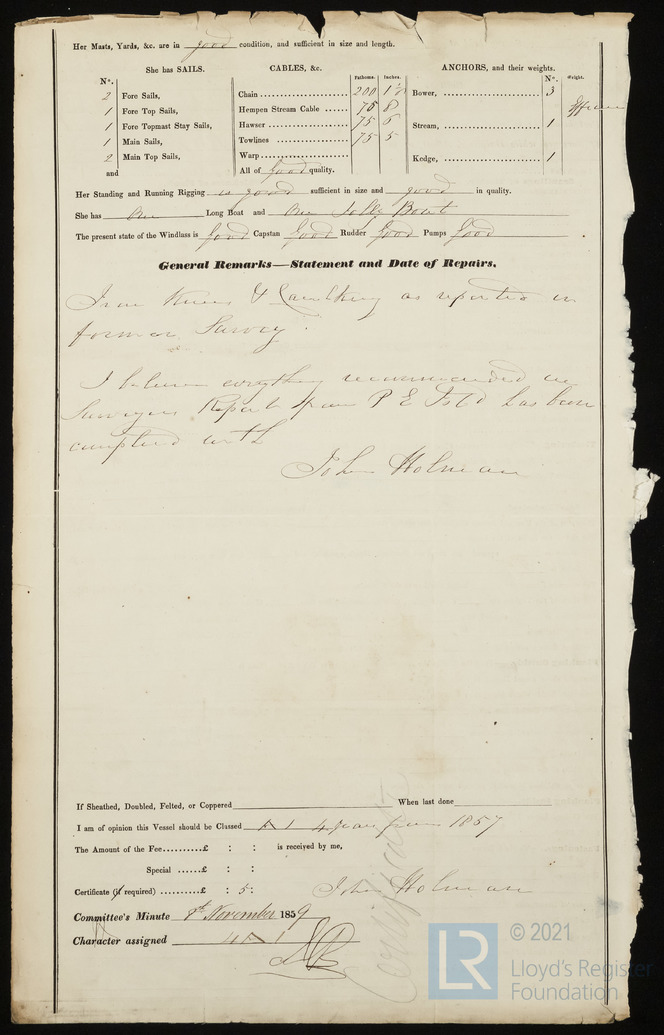 Her Masts, Yards, &c. are in good condition, and sufficient in size and length.
She has SAILS. CABLES, &c. ANCHORS, and their weights.
N°. Fathoms. Inches. N°. Weight.
2 Fore Sails, Chain 200 Bower, 3
1 Fore Top Sails, Hempen Stream Cable 75 8
1 Fore Topmast Stay Sails, Hawser 75 6 Stream, 1
1 Main Sails, Towlines 75 5
2 Main Top Sails, Warp Kedge, 1
and All of good quality.
Her Standing and Running Rigging is good sufficient in size and good in quality.
She has One Long Boat and One Jolly Boat
The present state of the Windlass is Good Capstan Good Rudder Good Pumps Good
General Remarks—Statement and Date of Repairs.
Iron Knees & as reported in
former Survey.
I believe everything recommended in
Surveyors Report from P E Isld has been
complied with
John Holman
If Sheathed, Doubled, Felted, or Coppered When last done
I am of opinion this Vessel should be Classed A 1 4 years from 1857
The Amount of the Fee..........£ : : is received by me,
Special ......£ : :
Certificate (if required) ..........£ : 5 :
John Holman
Committee's Minute 8th November 1859
Character assigned 4 A 1
© 2021
LR
Lloyd's Register
Foundation